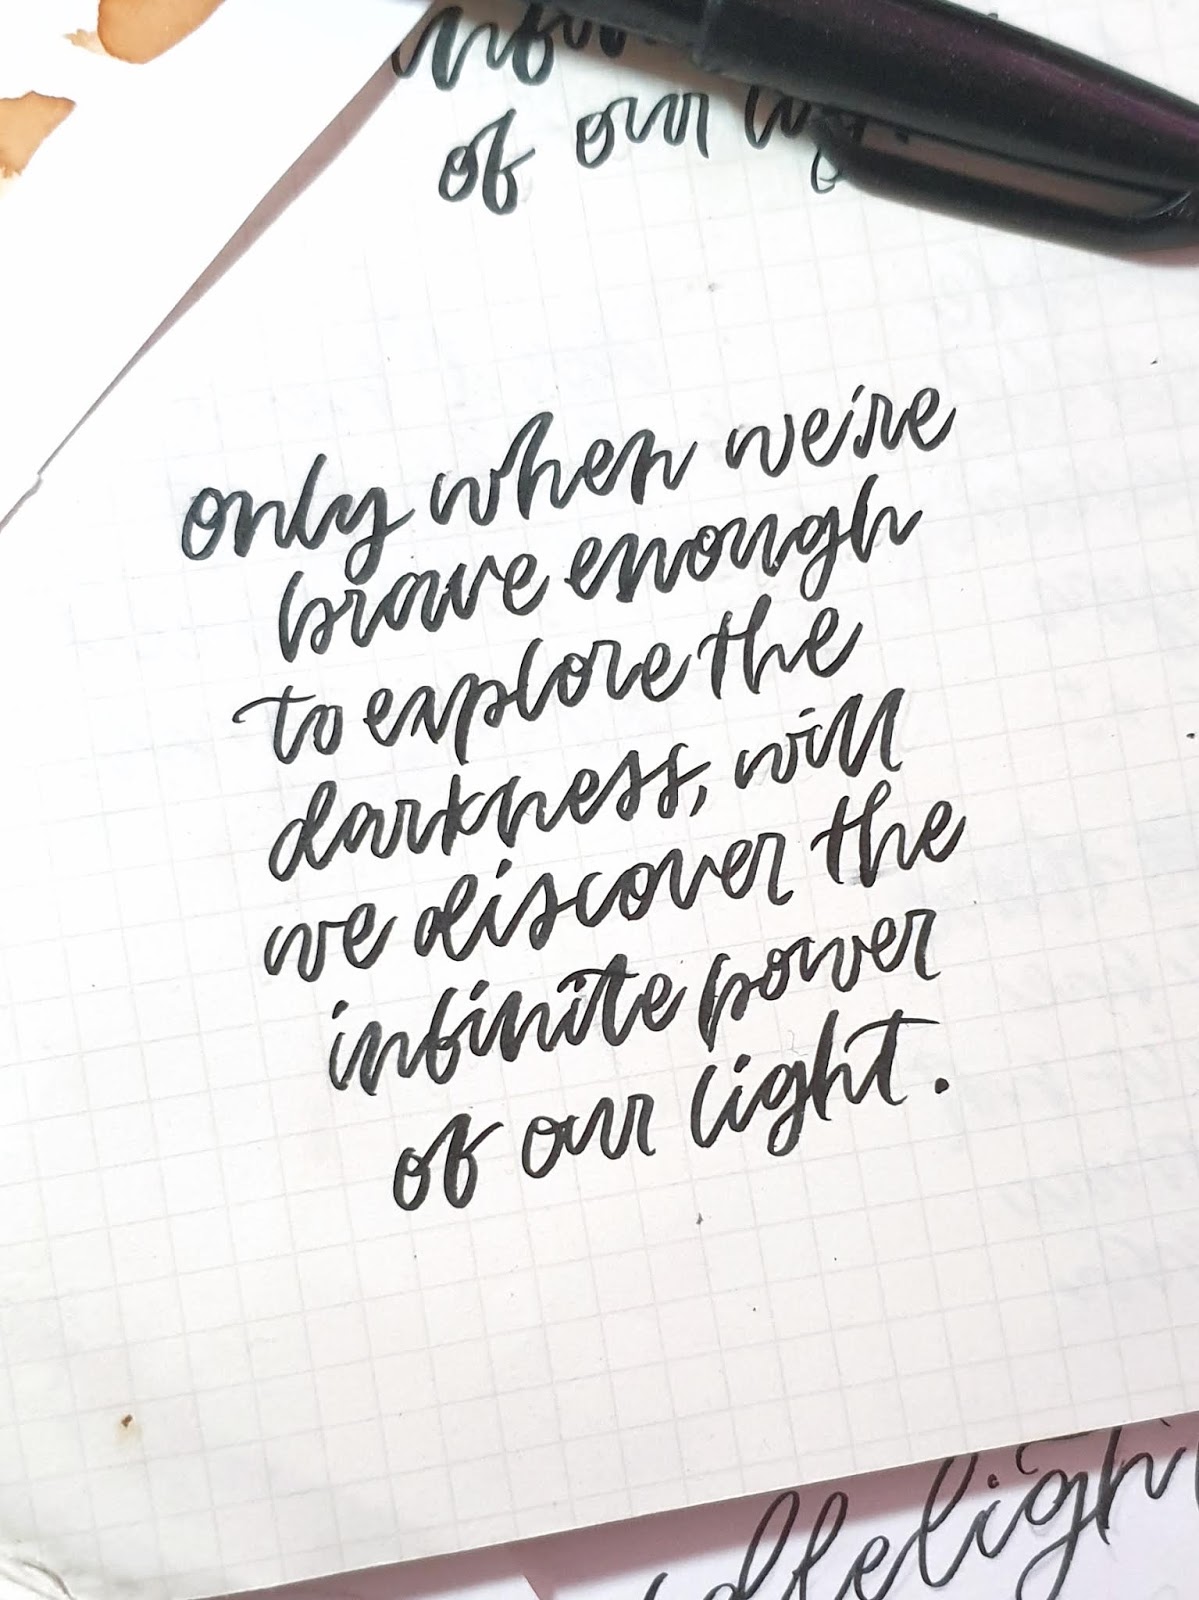 of our
only when we're
brave enough
to explore the
darkness, will
we discover the
infinite power
of our light.